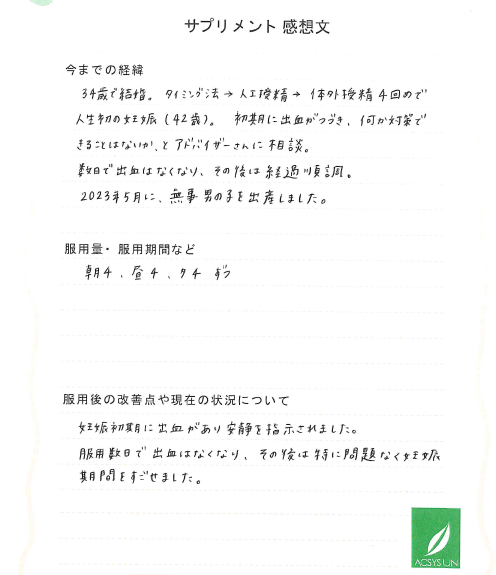 サプリメント 感想文
今までの経緯
34歳で結婚。タイミング法→人工授精→体外授精4回めで
人生初の妊娠(42歳)。初期に出血がつづき、何か対策で
きることはないか、とアドバイザーさんに相談。
数日で出血はなくなり、その後は経過順調。
2023年5月に、無事男の子を出産しました。
服用量・服用期間など
朝4、昼4、夕4 ずつ
服用後の改善点や現在の状況について
妊娠初期に出血があり安静を指示されました。
服用数日で出血はなくなり、その後は特に問題なく妊娠
期間をすごせました。
ACSYSUN